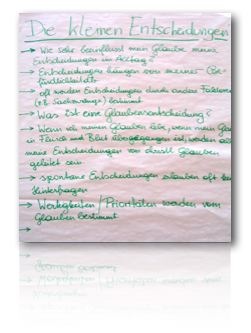 Die kleinen Entscheidungen
→ Wie sehr beeinflusst mein Glaube meine
Entscheidungen im Alltag?
→ Entscheidungen hängen von meiner Be-
findlichkeit ab
→ oft werden Entscheidungen durch andere Faktoren
(z.B. Sachzwänge) bestimmt
→ Was ist eine Glaubensentscheidung?
→ Wenn ich meinen Glauben übe, wenn mein Glaube
in Fleisch und Blut übergegangen ist, werden alle
meine Entscheidungen vom christl. Glauben
geleitet sein
→ spontane Entscheidungen erlauben oft kein
Hinterfragen
→ Wertigkeiten/Prioritäten werden vom
Glauben bestimmt
→